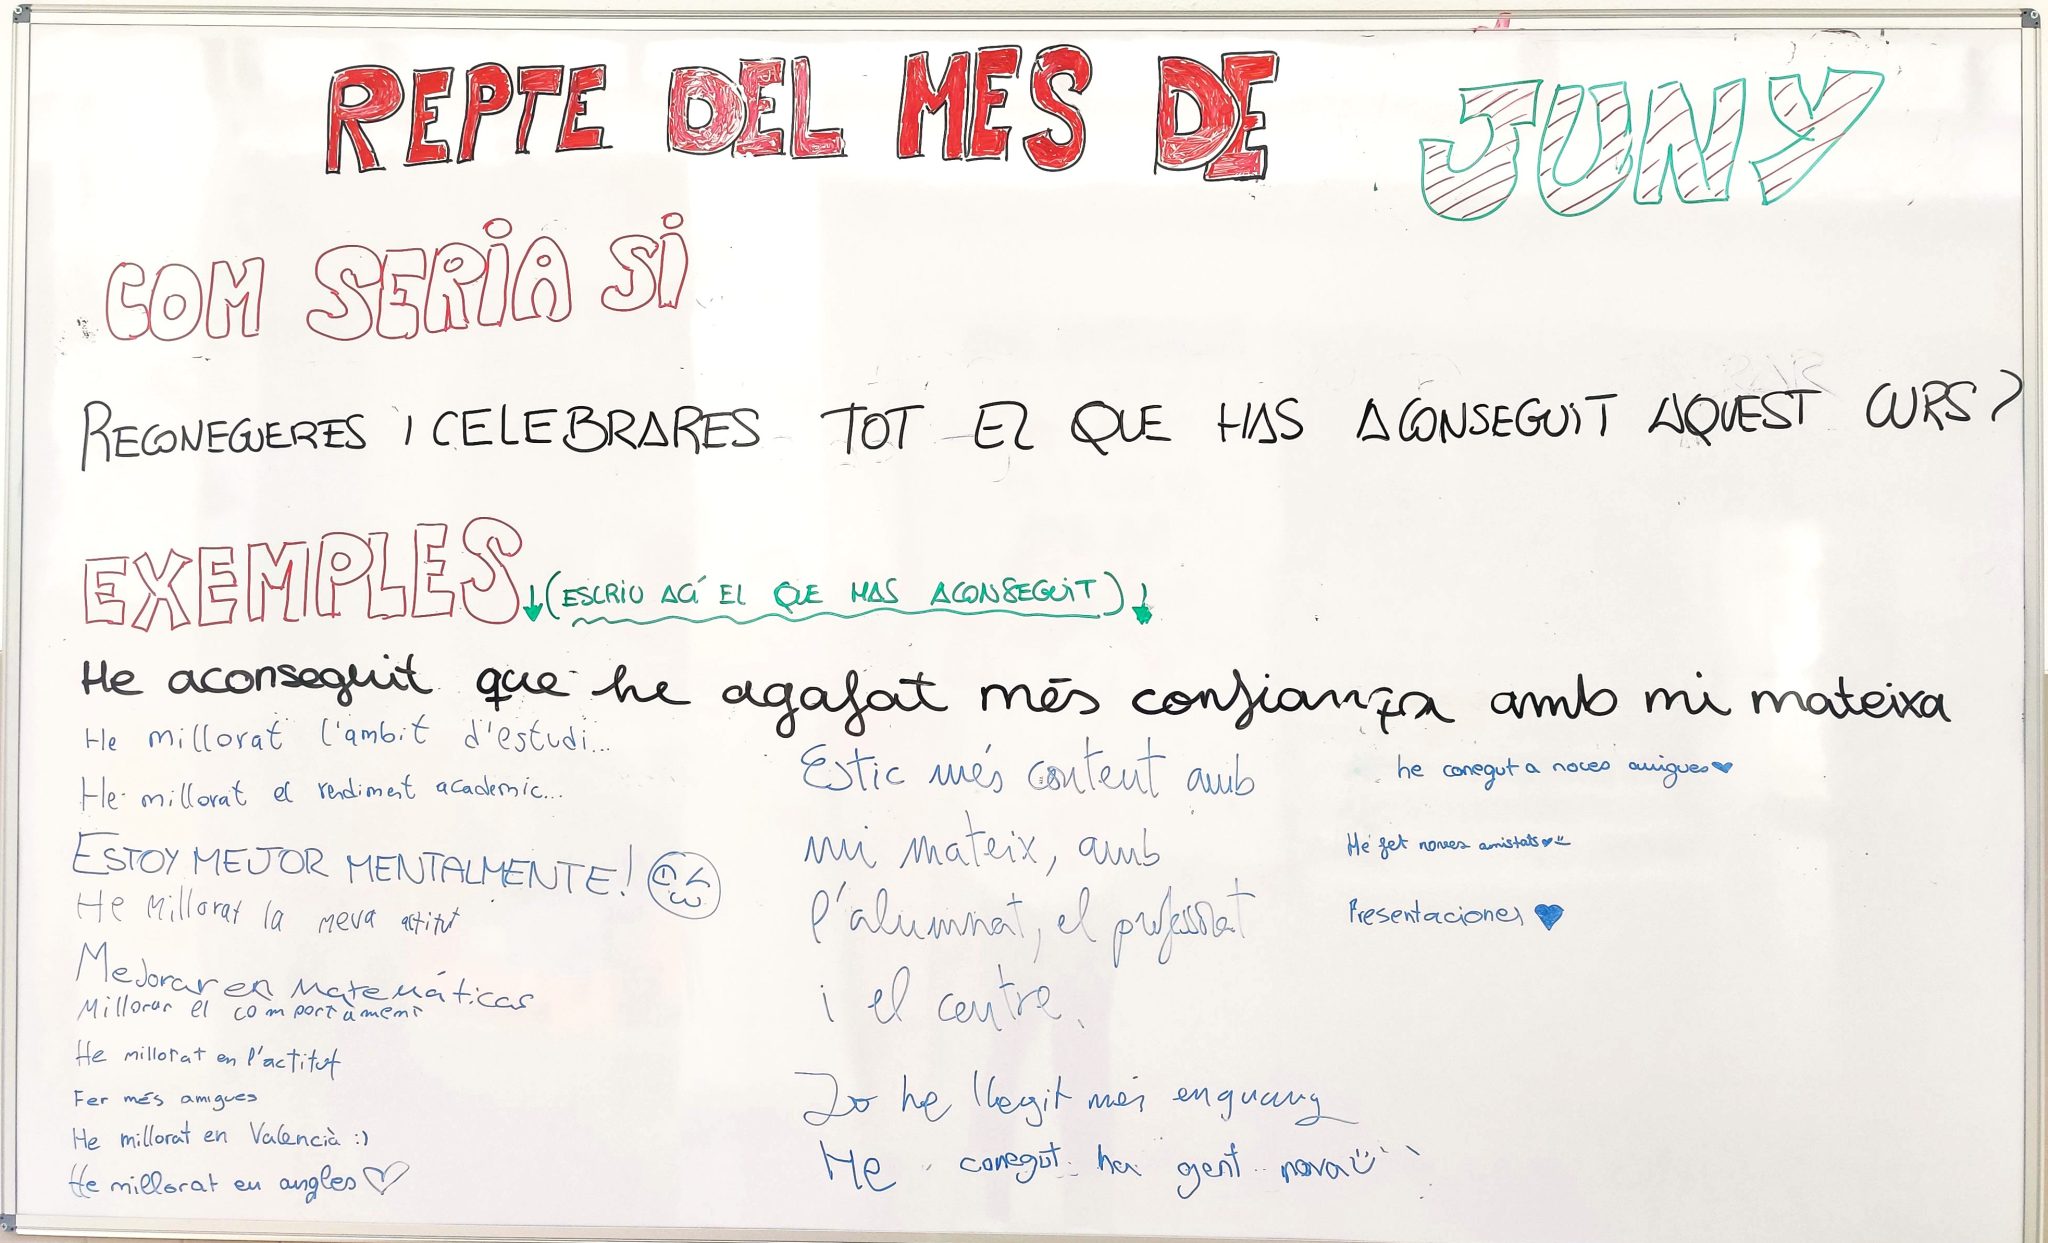 REPTE DEL MES DE JUNY
COM SERIA SI
RECONEGUERES I CELEBRARES TOT EL QUE HAS ACONSEGUIT AQUEST CURS?
EXEMPLES (ESCRIU ACÍ EL QUE HAS ACONSEGUIT)
He aconseguit que he agafat més confiança amb mi mateixa
He millorat l'ambit d'estudi...
He millorat el rendiment academic...
ESTOY MEJOR MENTALMENTE!
He Millorat la meva actitut
Mejorar en Matemáticas
Millorar el comportament
He millorat en l'actitut
Fer més amigues
He millorat en Valencià :)
He millorat en angles
Estic més content amb
mi mateix, amb
l'alumnat, el professorat
i el centre.
Jo he llegit més
He conegut ha gent nova
he conegut a noves amigues
He fet noves amistats
Presentaciones